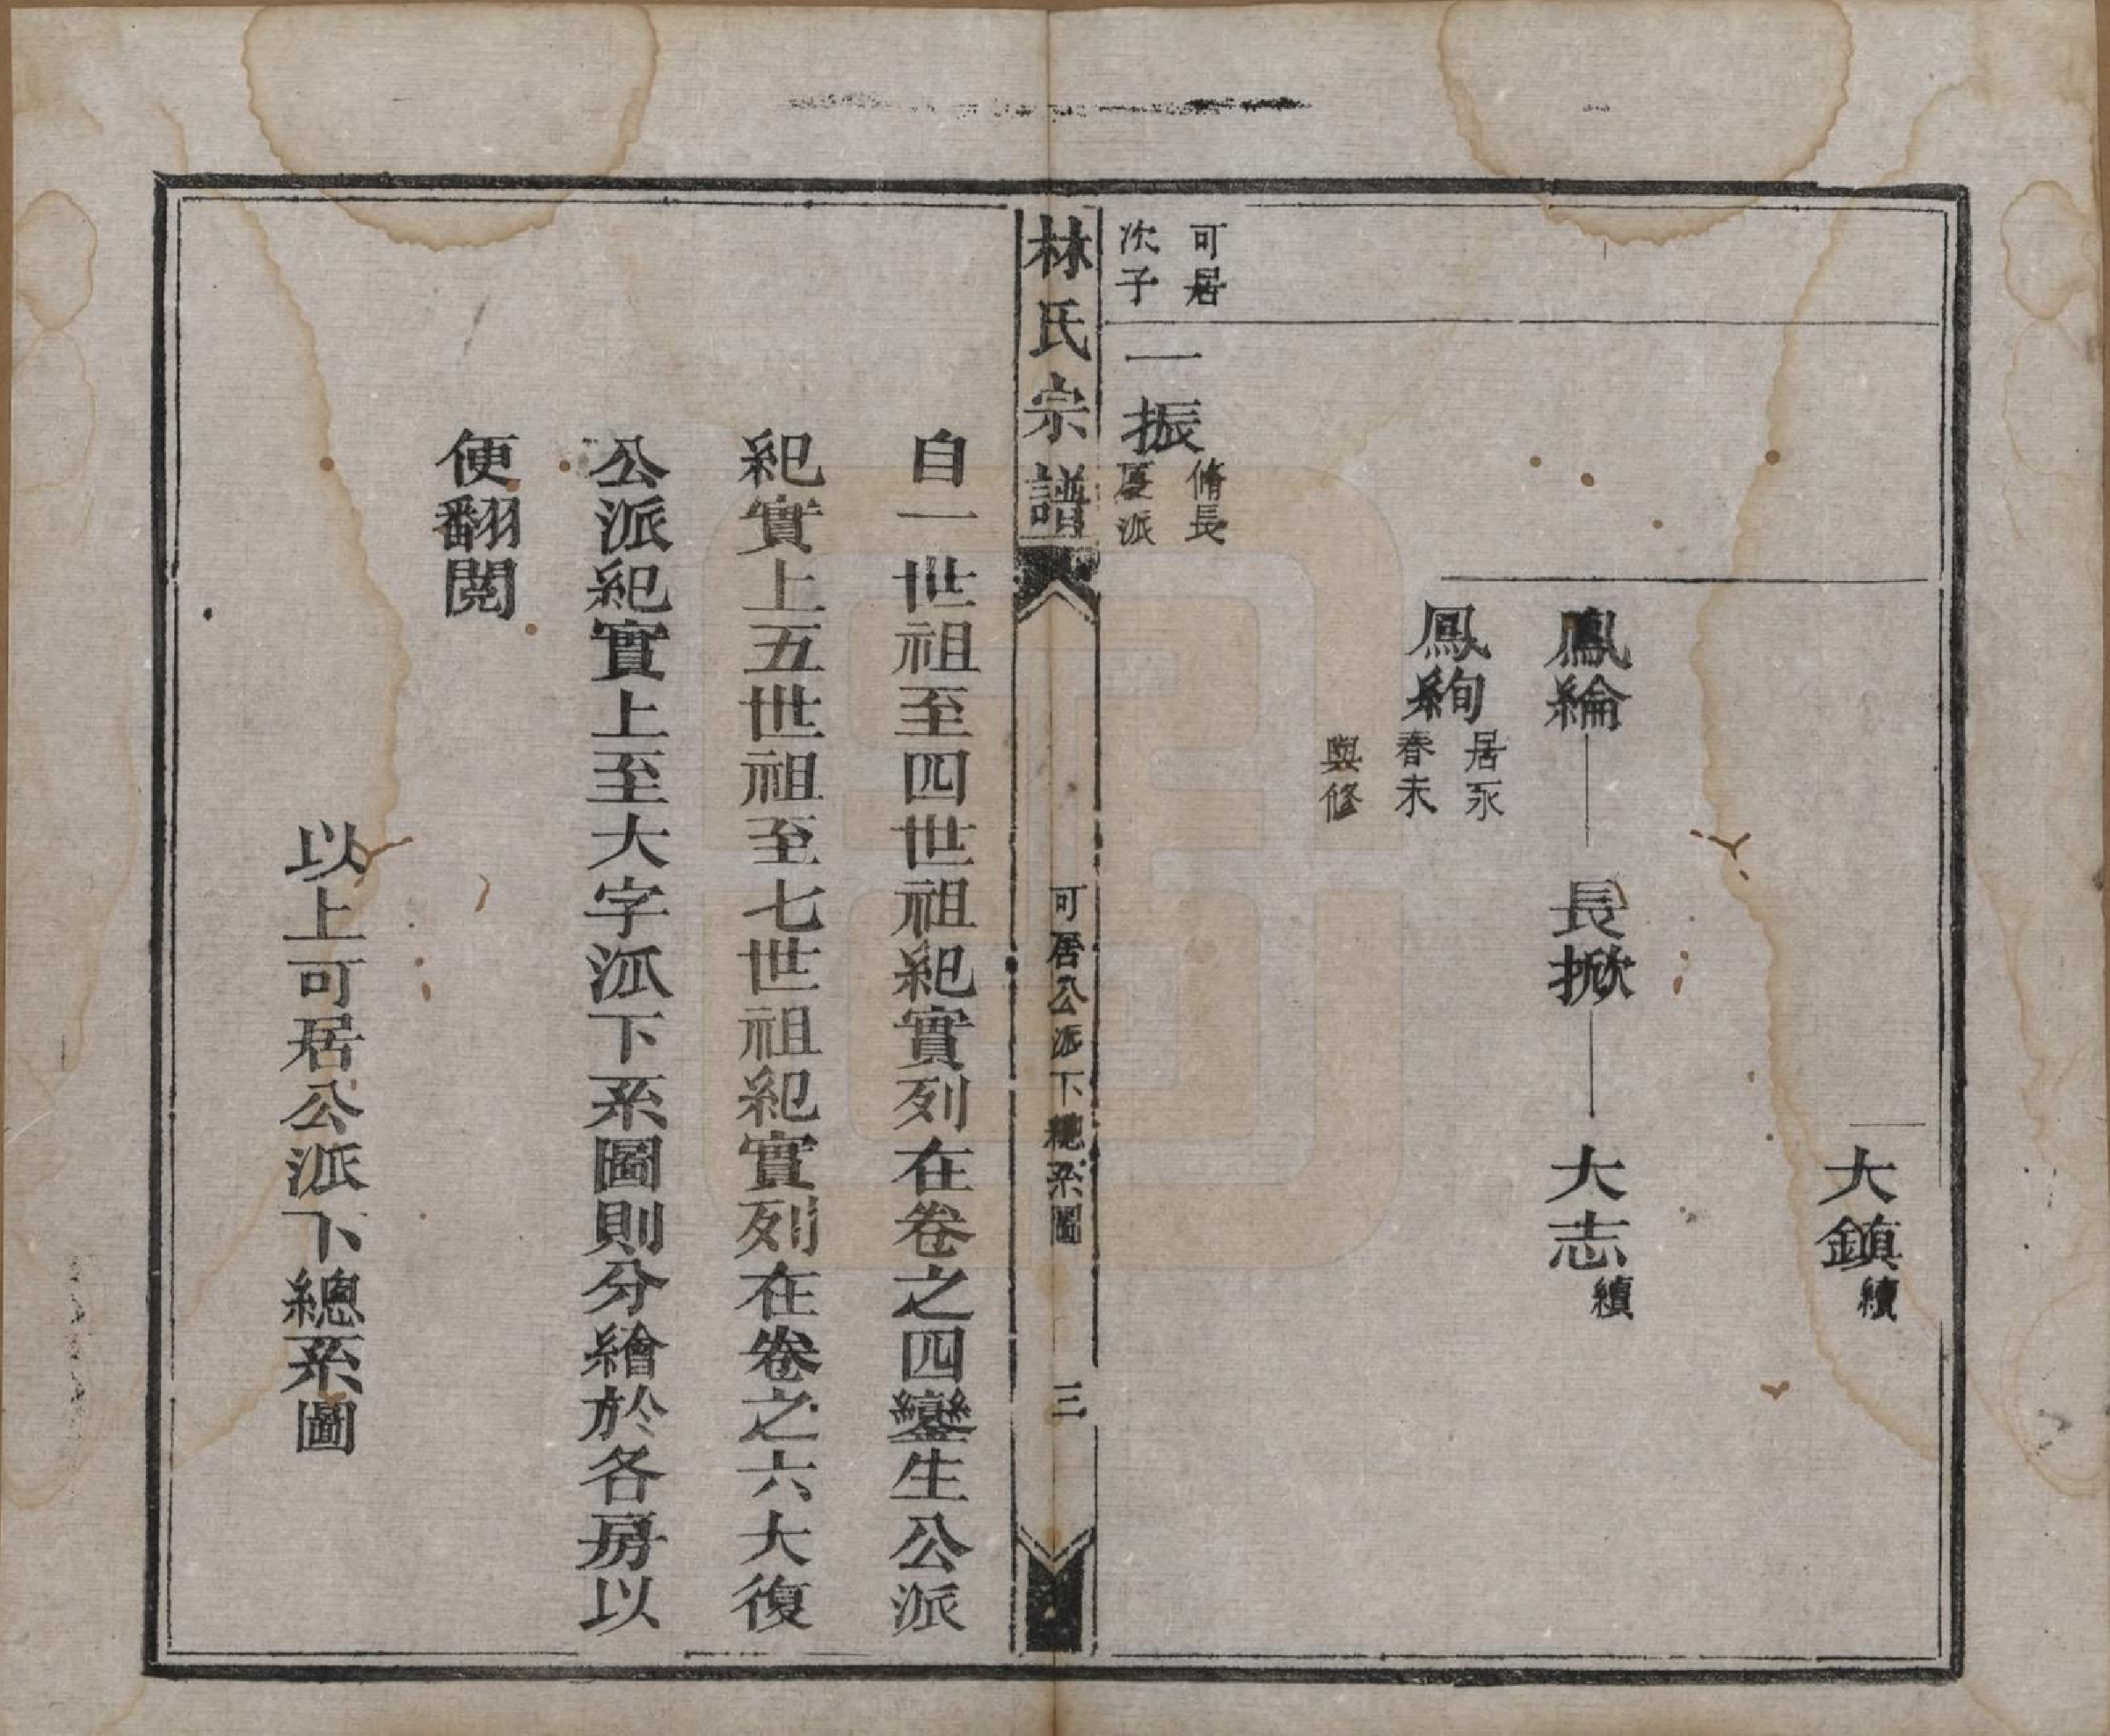 大鎮續
鳳綸 長掀 大志續
鳳絢居永春未與修
可居次子
一振脩長厦派
林氏宗譜
可居公派下總系圖
三
自一世祖至四世祖紀實列在卷之四鑾生公派
紀實上五世祖至七世祖紀實列在卷之六大復
公派紀實上至大字派下系圖則分繪於各房以
便翻閱
以上可居公派下總系圖